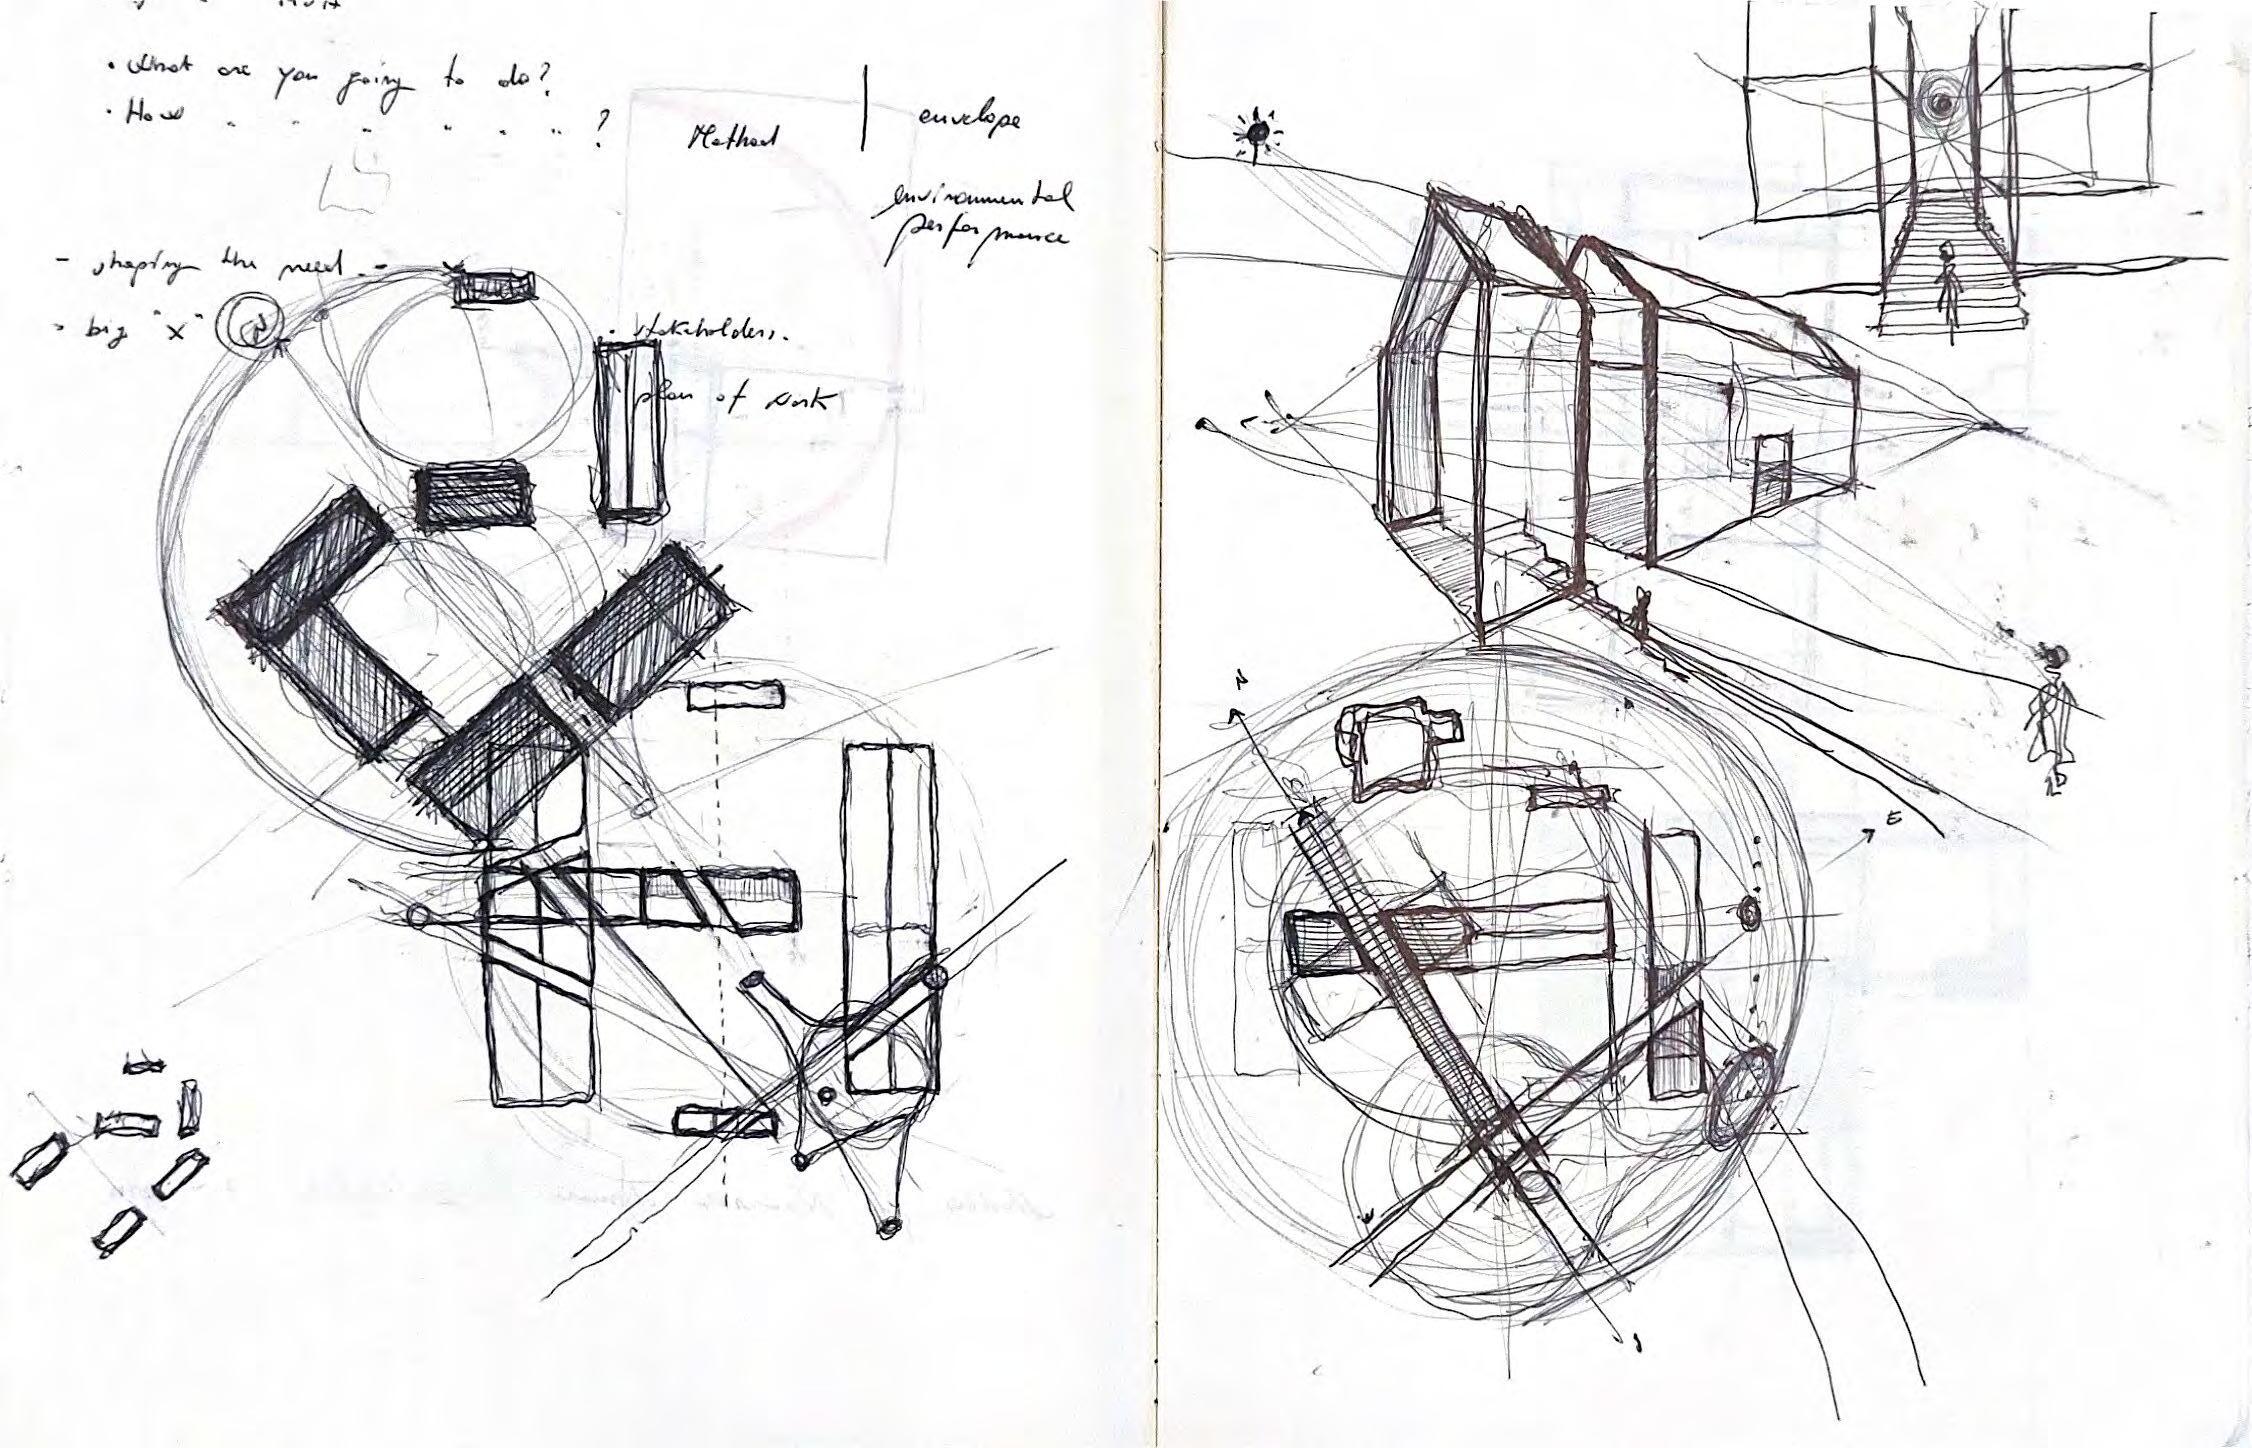 • What are you going to do?
• How " " " " " " ?
Method
envelope
environmental
performance
- shaping the need.
> big "X"
• stakeholders.
plan of work
N
N
E